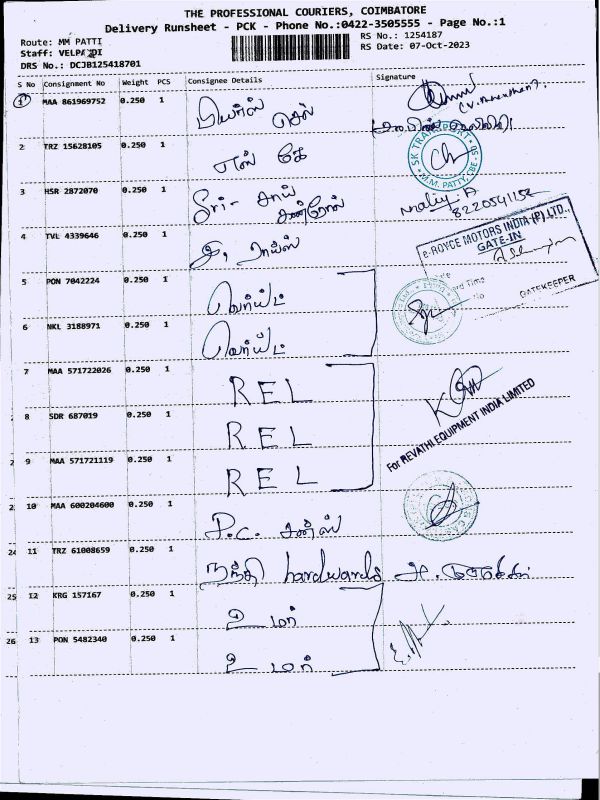 THE PROFESSIONAL COURIERS, COIMBATORE
Delivery Runsheet - PCK - Phone No.:0422-3505555 - Page No.:1
Route: MM PATTI
RS No.: 1254187
Staff:
RS Date: 07-Oct-2023
DRS No.: DCJB125418701
S No Consignment No Weight PCS Consignee Details Signature
1 MAA 861969752 0.250 1
2 TRZ 15628105 0.250 1 எஸ் கே
SK TRANSPORT
M.M. PATTY, CBE
3 HSR 2872070 0.250 1 ஸ்ரீ சாய்
8220541152
4 TVL 4339646 0.250 1
e-ROYCE MOTORS INDIA (P) LTD.,
GATE-IN
GATEKEEPER
5 PON 7042224 0.250 1
6 NKL 3188971 0.250 1
7 MAA 571722026 0.250 1 REL
8 SDR 687019 0.250 1 REL
For REVATHI EQUIPMENT INDIA LIMITED
9 MAA 571721119 0.250 1 REL
10 MAA 600204600 0.250 1 P.C. சன்ஸ்
24 11 TRZ 61008659 0.250 1 நந்தி hardwards
25 12 KRG 157167 0.250 1 உமர்
26 13 PON 5482340 0.250 1 உமர்